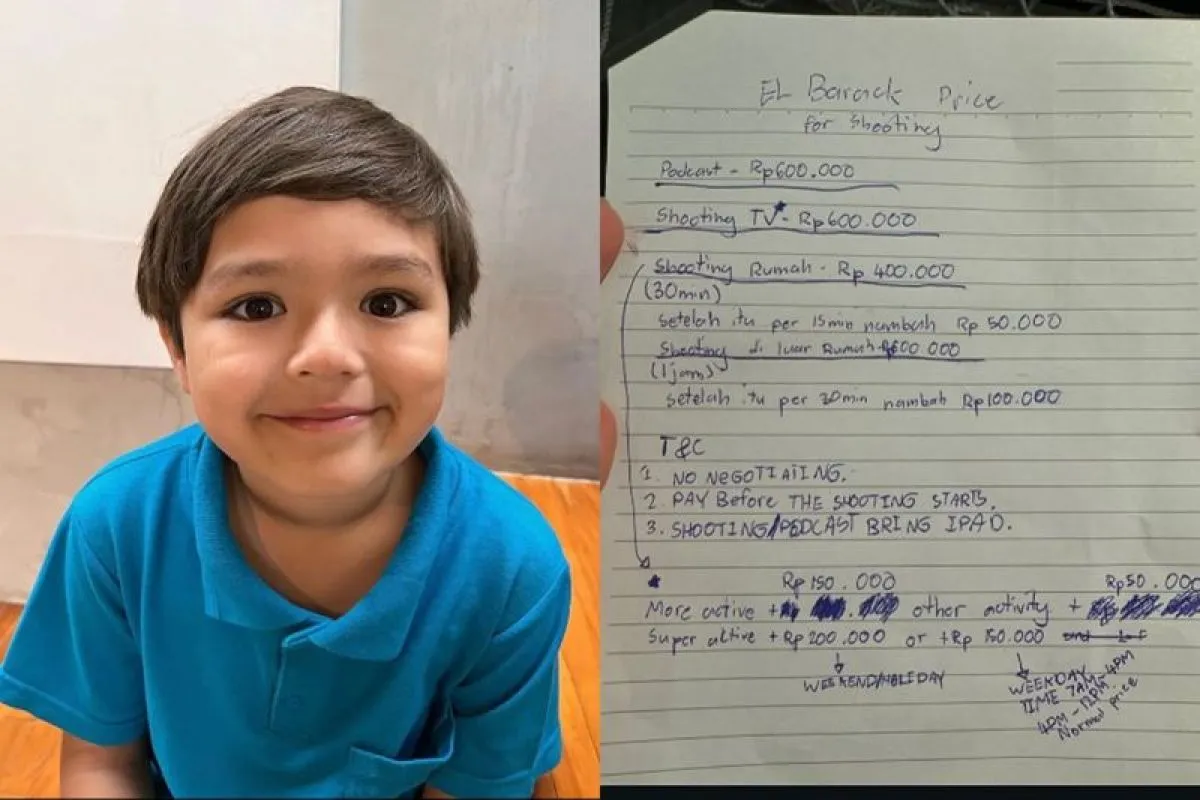 EL Barack Price
for shooting
Podcast - Rp600.000
Shooting TV* - Rp600.000
Shooting Rumah - Rp 400.000
(30min)
setelah itu per 15min nambah Rp 50.000
Shooting di luar Rumah - Rp600.000
(1jam)
setelah itu per 30min nambah Rp100.000
T&C
1. NO NEGOTIATING.
2. PAY Before THE SHOOTING STARTS.
3. SHOOTING/PODCAST BRING IPAD.
* Rp150.000 Rp50.000
More active + other activity +
Super aktive +Rp200.000 or +Rp 150.000
WEEKEND/HOLIDAY
WEEKDAY
TIME 7AM-4PM
4PM-12PM
Normal price